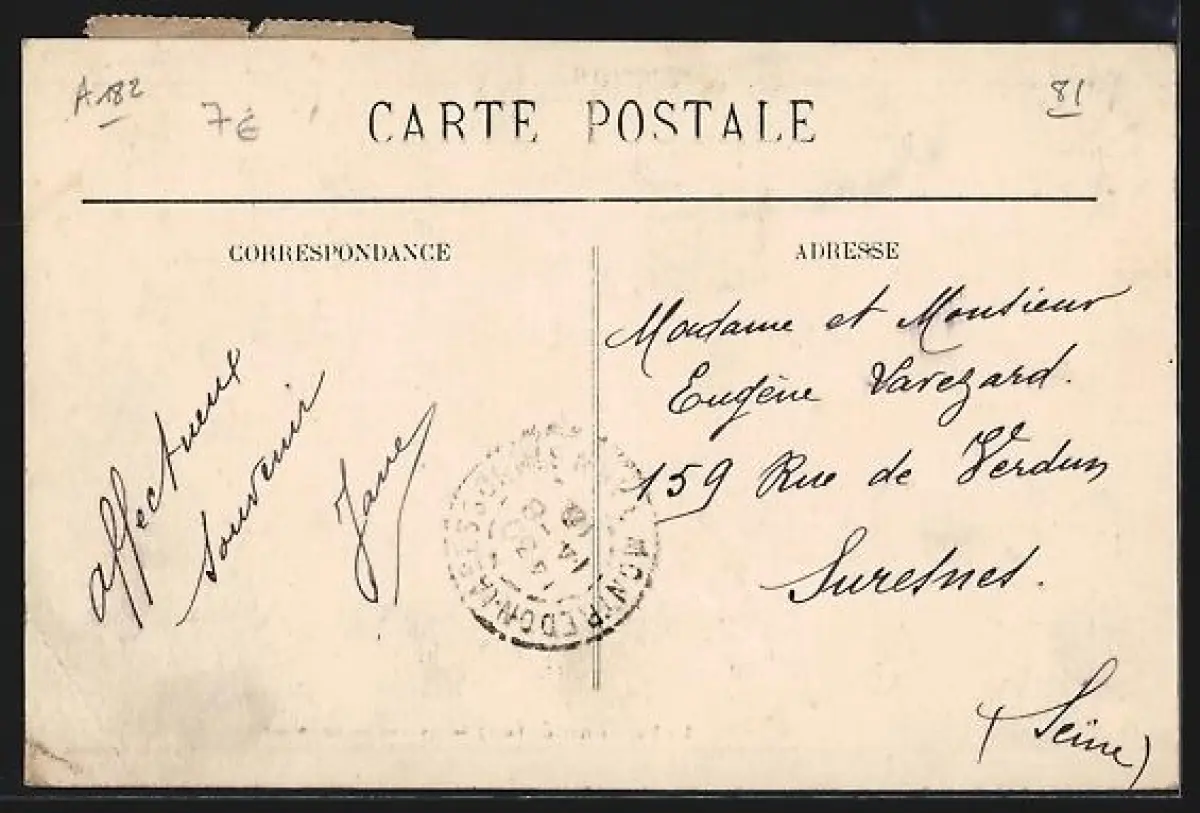 A182
7€
81
CARTE POSTALE
CORRESPONDANCE
ADRESSE
affectueux
souvenir
Jane
Madame et Monsieur
Eugène Varezard.
159 Rue de Verdun
Suresnes.
(Seine)
MONTREDON-LABESSONNIÉ
14